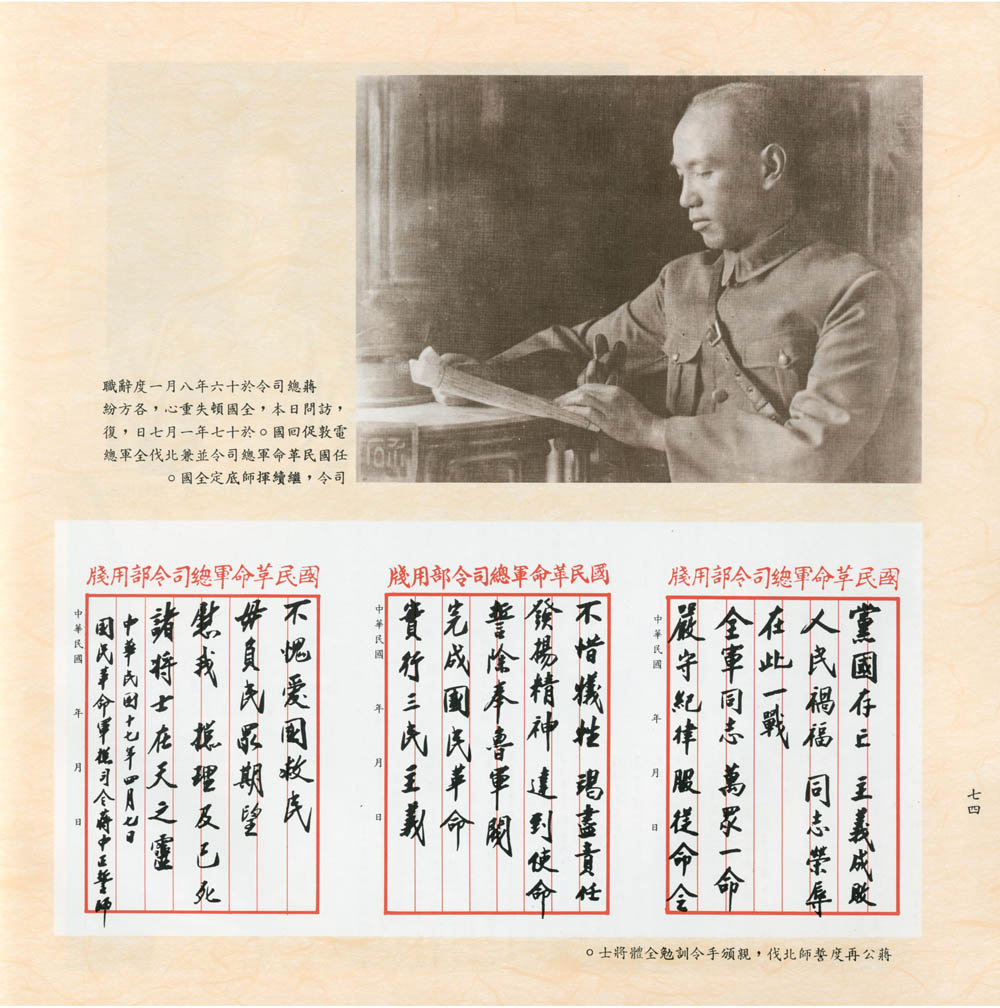 蔣總司令於十六年八月一度辭職
,訪問日本,全國頓失重心,各方紛
電敦促回國。於十七年一月七日,復
任國民革命軍總司令並兼北伐全軍總
司令,繼續揮師底定全國。
國民革命軍總司令部用牋
黨國存亡 主義成敗
人民禍福 同志榮辱
在此一戰
全軍同志 萬眾一命
嚴守紀律 服從命令
中華民國 年 月 日
國民革命軍總司令部用牋
不惜犧牲 竭盡責任
發揚精神 達到使命
誓除奉魯軍閥
完成國民革命
實行三民主義
中華民國 年 月 日
國民革命軍總司令部用牋
不愧愛國救民
毋負民眾期望
慰我 總理及已死
諸將士在天之靈
中華民國十七年四月七日
國民革命軍總司令蔣中正誓師
中華民國 年 月 日
蔣公再度誓師北伐,親頒手令訓勉全體將士。
七四